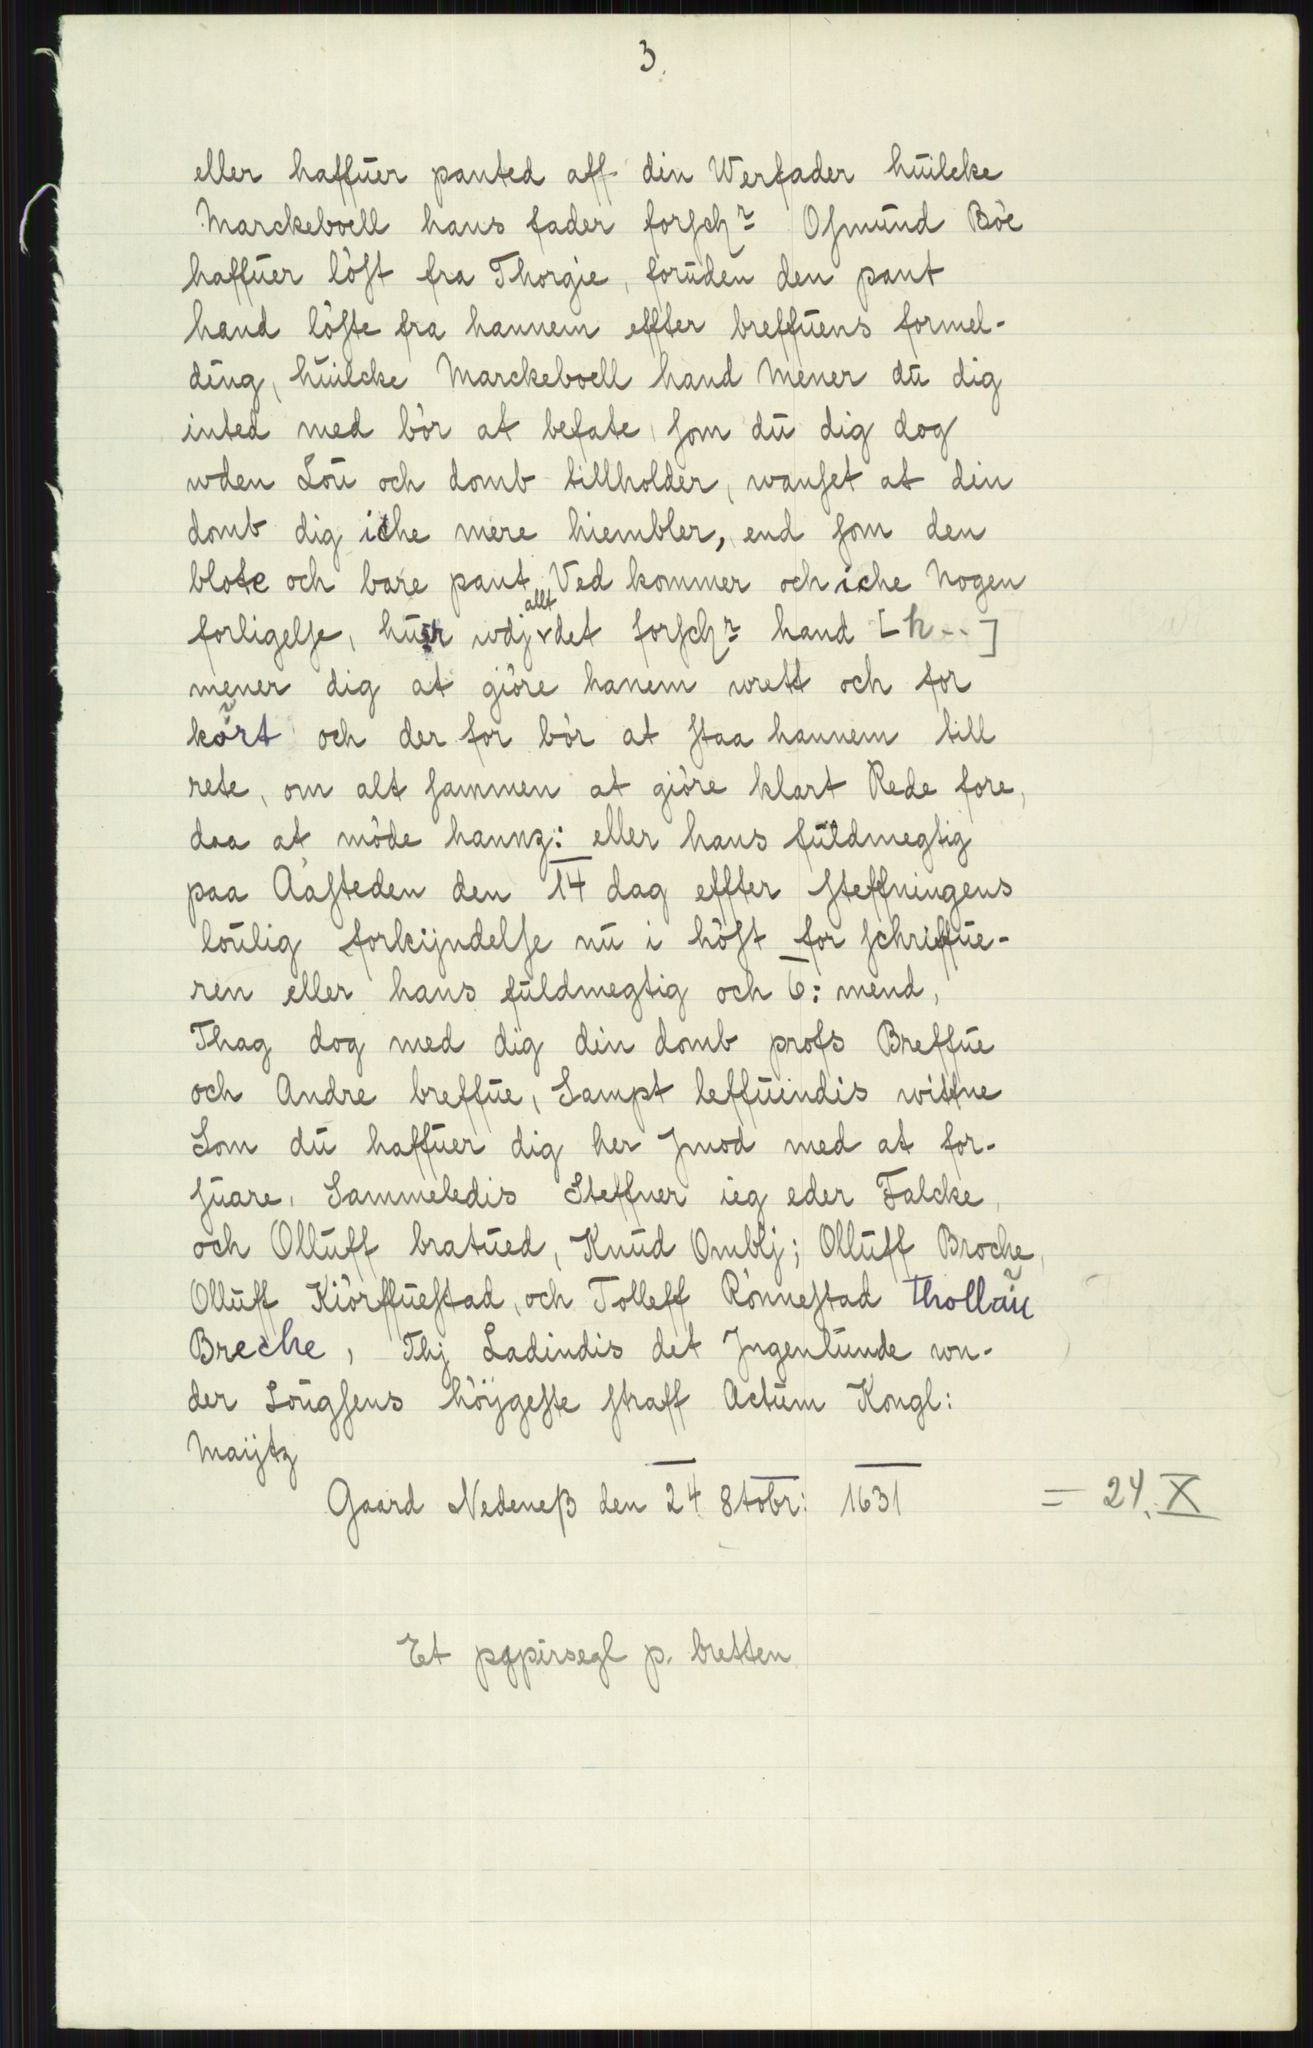 3.
eller haffuer panted aff din Werfader huilcke
Marckeboell hans fader forschr Osmund Böe
haffuer löst fra Thorgie, foruden den pant
hand löste fra hannem effter breffuens formel-
ding, huilcke Marckeboell hand Mener du dig
inted med bör at befate, som du dig dog
wden Lou och domb tillholder, wanset at din
domb dig iche mere hiembler, end som den
blote och bare pant Ved kommer och iche Nogen
forligelse, huer wdj allt det forschr hand [h--]
mener dig at giöre hanem wrett och for
kort och der for bör at staa hannem till
rete, om alt sammen at giöre klart Rede fore,
daa at möde hannz: eller hans fuldmegtig
paa Aasteden den 14 dag effter steffningens
loulig forkijndelse nu i höst for schriffue-
ren eller hans fuldmegtig och 6: mend,
Thag dog med dig din domb profs Breffue
och Andre breffue, Sampt leffuindis wittne
Som du haffuer dig her Jmod med at for-
suare, Sammeledis Steffner ieg eder Falcke,
och Olluff bratued, Knud Omblj; Olluff Broche,
Olluff Kiörffuestad, och Tolleff Rönnestad thollau
Breche, Thj Ladindis det Jngenlunde wn-
der Lougsens höijgeste straff Actum Kongl:
Maijtz
Gaard Nedeneß den 24 8tobr: 1631 = 24. X
Et papirsegl p. bretten